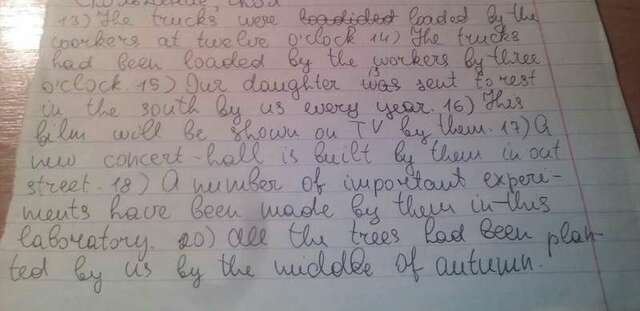 13) The trucks were loaded by the
workers at twelve o'clock 14) The trucks
had been loaded by the workers by three
o'clock. 15) Our daughter is sent to rest
in the south by us every year. 16) This
film will be shown on TV by them. 17) A
new concert-hall is built by them in out
street. 18) A number of important experi-
ments have been made by them in this
laboratory. 20) All the trees had been plan-
ted by us by the middle of autumn.